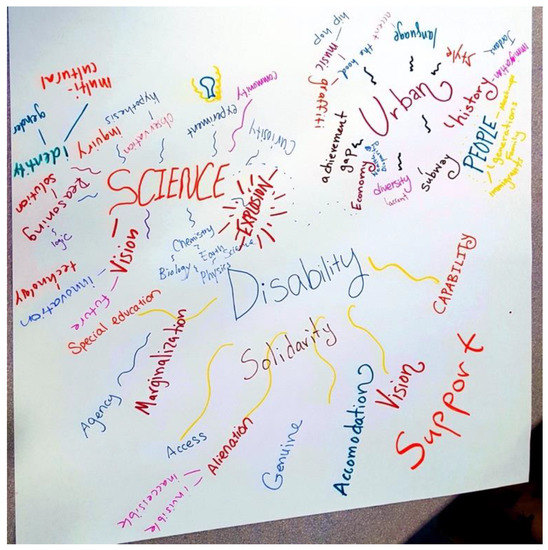 multi-
cultural
gender
identity
hypothesis
observation
inquiry
experiment
community
Curiosity
SCIENCE
EXPLOSION
Reasoning
solution
logic
Vision
technology
innovation
future
Chemistry
Biology
Earth
Science
Physics
hip hop
music
graffiti
the hood
accent
language
style
Urban
history
immigration
PEOPLE
generations
Family
immigrants
achievement
gap &
Economy
diversity
subway
Disability
Special education
Marginalization
Agency
Solidarity
Access
Alienation
invisible
inaccessible
Genuine
Accomodation
Vision
CAPABILITY
Support